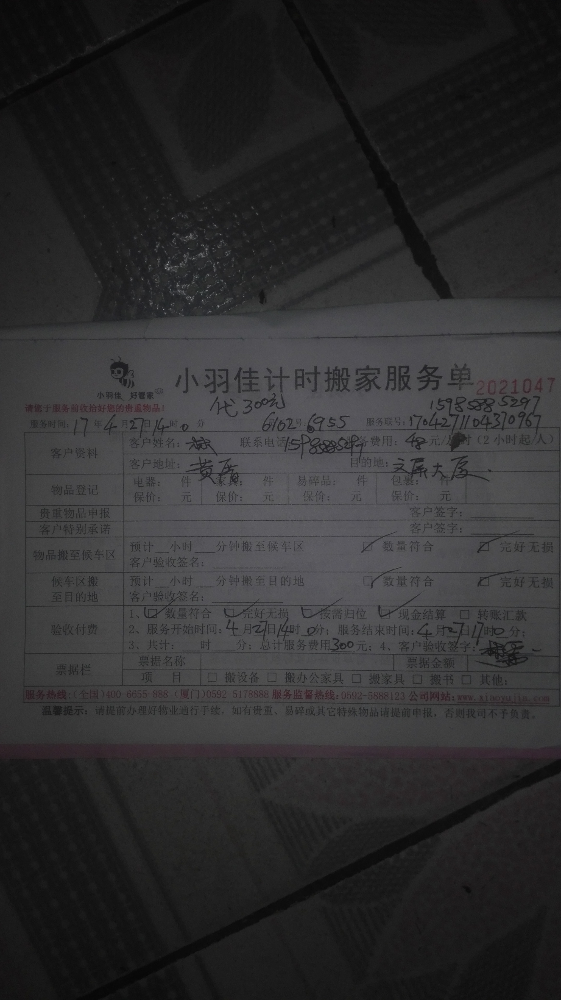 小羽佳 好管家
小羽佳计时搬家服务单 2021047
请勇士服务前收拾好您的贵重物品!
代300元
服务时间: 17年4月27日14时0分 服务取号:
客户资料 客户姓名: 联系电话 费用: 元/ (2小时起/人)
客户地址: 黄厝 目的地: 大厦
物品登记 电器: 件 家具: 件 易碎品: 件 包裹: 件
保价: 元 保价: 元 保价: 元 保价: 元
贵重物品申报 客户签字:
客户特别承诺 客户签字:
物品搬至候车区 预计__小时___分钟搬至候车区 ☑ 数量符合 ☑ 完好无损
客户验收签名:
候车区搬至目的地 预计__小时___分钟搬至目的地 ☑ 数量符合 ☑ 完好无损
客户验收签名:
验收付费 1、☑ 数量符合 ☑ 完好无损 ☑ 按需归位 ☑ 现金结算 □ 转账汇款
2、服务开始时间: 4月27日14时0分; 服务结束时间: 4月27日17时0分;
3、共计: 时 分; 总计服务费用300元; 4、客户验收签字:
票据栏 票据名称 票据金额
项 目 □ 搬设备 □ 搬办公家具 □ 搬家具 □ 搬书 □ 其他:
服务热线: (全国)400-6655-888 (厦门)0592-5178888 服务监督热线: 0592-5888123 公司网站: www.xiaoyujia.com
温馨提示: 请提前办理好物业通行手续。如有贵重、易碎或其它特殊物品请提前申报, 否则我司不予负责。